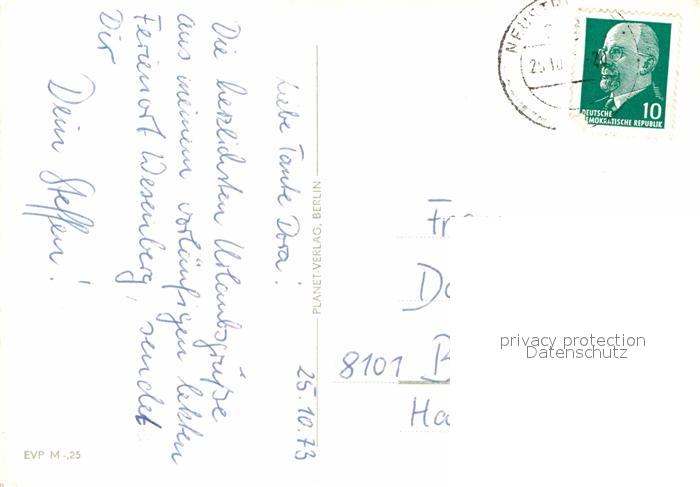 25.10.73
Liebe Tante Dora!
Die herzlichsten Urlaubsgrüße
aus meinem vorläufigen letzten
Ferienort Wesenberg, sendet
Dir
Dein Steffen!
PLANET-VERLAG, BERLIN
EVP M -,25
25.10
DEUTSCHE
DEMOKRATISCHE REPUBLIK
10
8101 B
Ha
privacy protection
Datenschutz